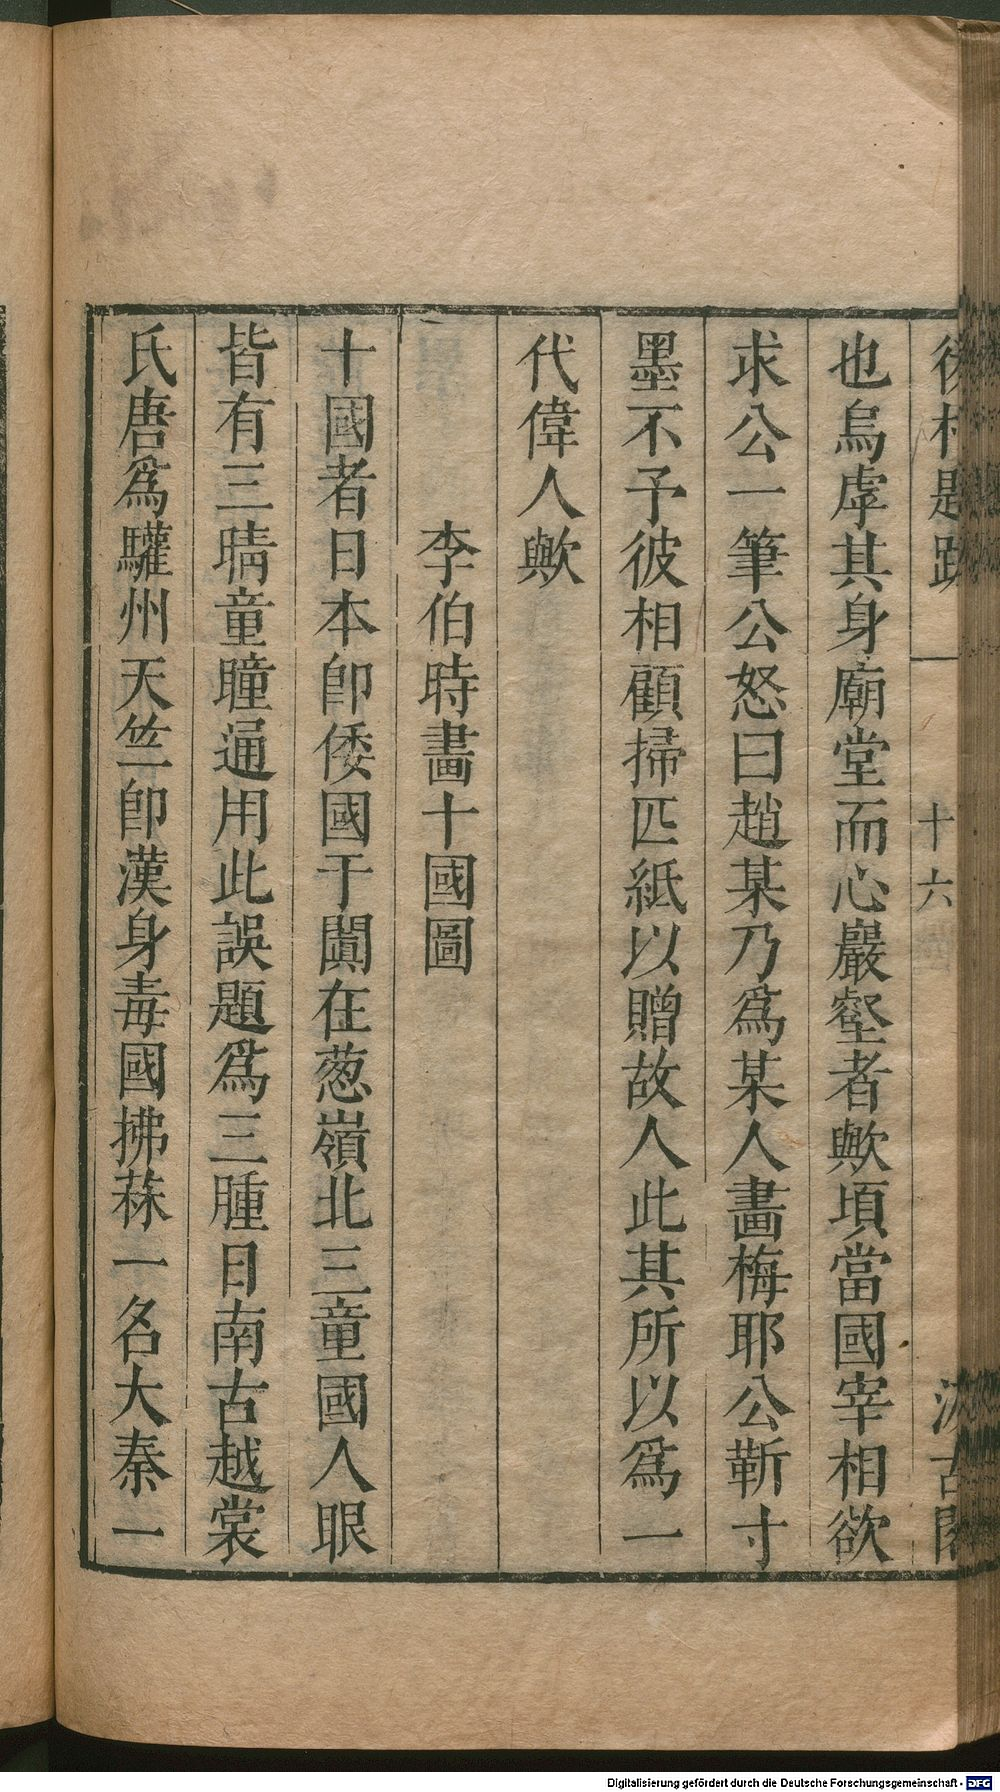 後村題跋 十六 汲古閣
也烏虖其身廟堂而心巖壑者歟頃當國宰相欲
求公一筆公怒曰趙某乃爲某人畫梅耶公靳寸
墨不予彼相顧掃匹紙以贈故人此其所以爲一
代偉人歟
李伯時畫十國圖
十國者日本卽倭國于闐在葱嶺北三童國人眼
皆有三睛童瞳通用此誤題爲三腫日南古越裳
氏唐爲驩州天竺卽漢身毒國拂菻一名大秦一
Digitalisierung gefördert durch die Deutsche Forschungsgemeinschaft - DFG